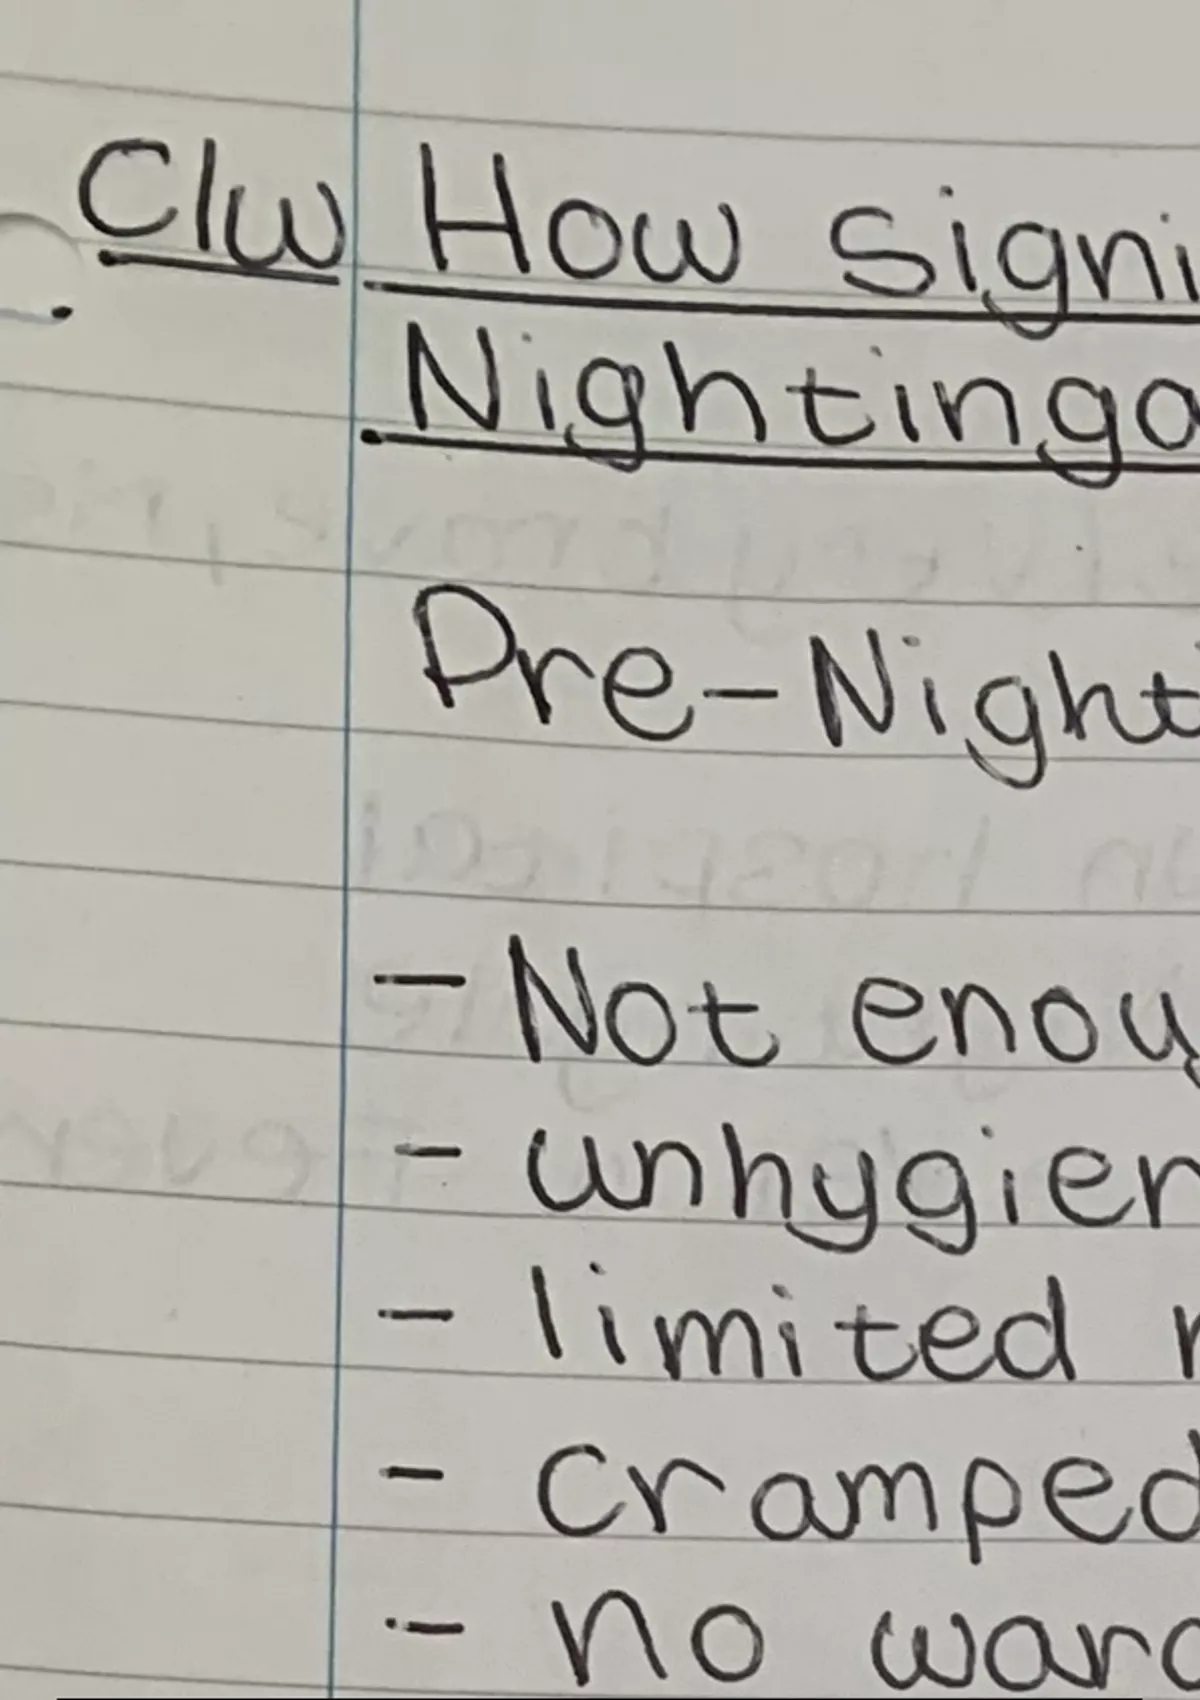 C/w How signi
Nightinga
Pre-Night
- Not enou
- unhygien
- limited
- cramped
- no ward